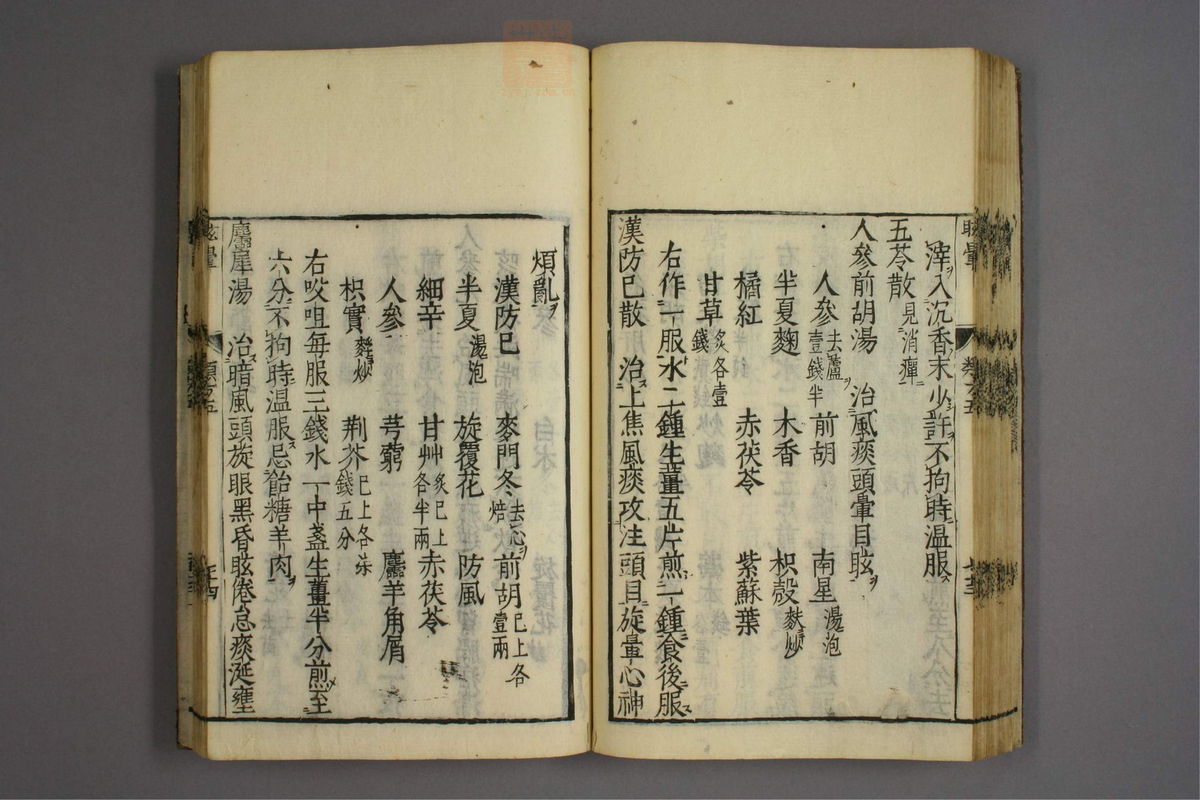 滓入沉香末少許不拘時温服
五苓散見消癉
人參前胡湯 治風痰頭暈目眩
人參去蘆壹錢半 前胡 南星湯泡
半夏麴 木香 枳殼麩炒
橘紅 赤茯苓 紫蘇葉
甘草炙各壹錢
右作一服水二鍾生薑五片煎一鍾食後服
漢防巳散 治上焦風痰攻注頭目旋暈心神
煩亂
漢防巳 麥門冬去心焙 前胡巳上各壹兩
半夏湯泡 旋覆花 防風
細辛 甘艸炙巳上各半兩 赤茯苓
人參 芎藭 麢羊角屑
枳實麩炒 荆芥巳上各柒錢五分
右㕮咀每服三錢水一中盞生薑半分煎至
六分不拘時温服忌飴糖羊肉
麢犀湯 治暗風頭旋眼黑昏眩倦怠痰涎壅